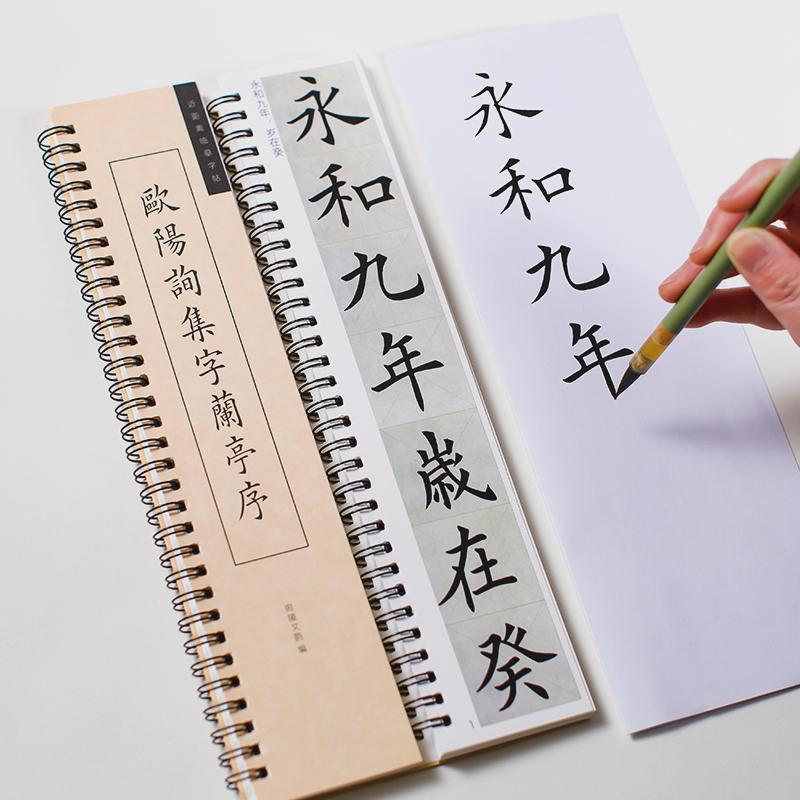 近距离临摹字帖
歐陽詢集字蘭亭序
永和九年，岁在癸
永和九年歲在癸
1
永和九年